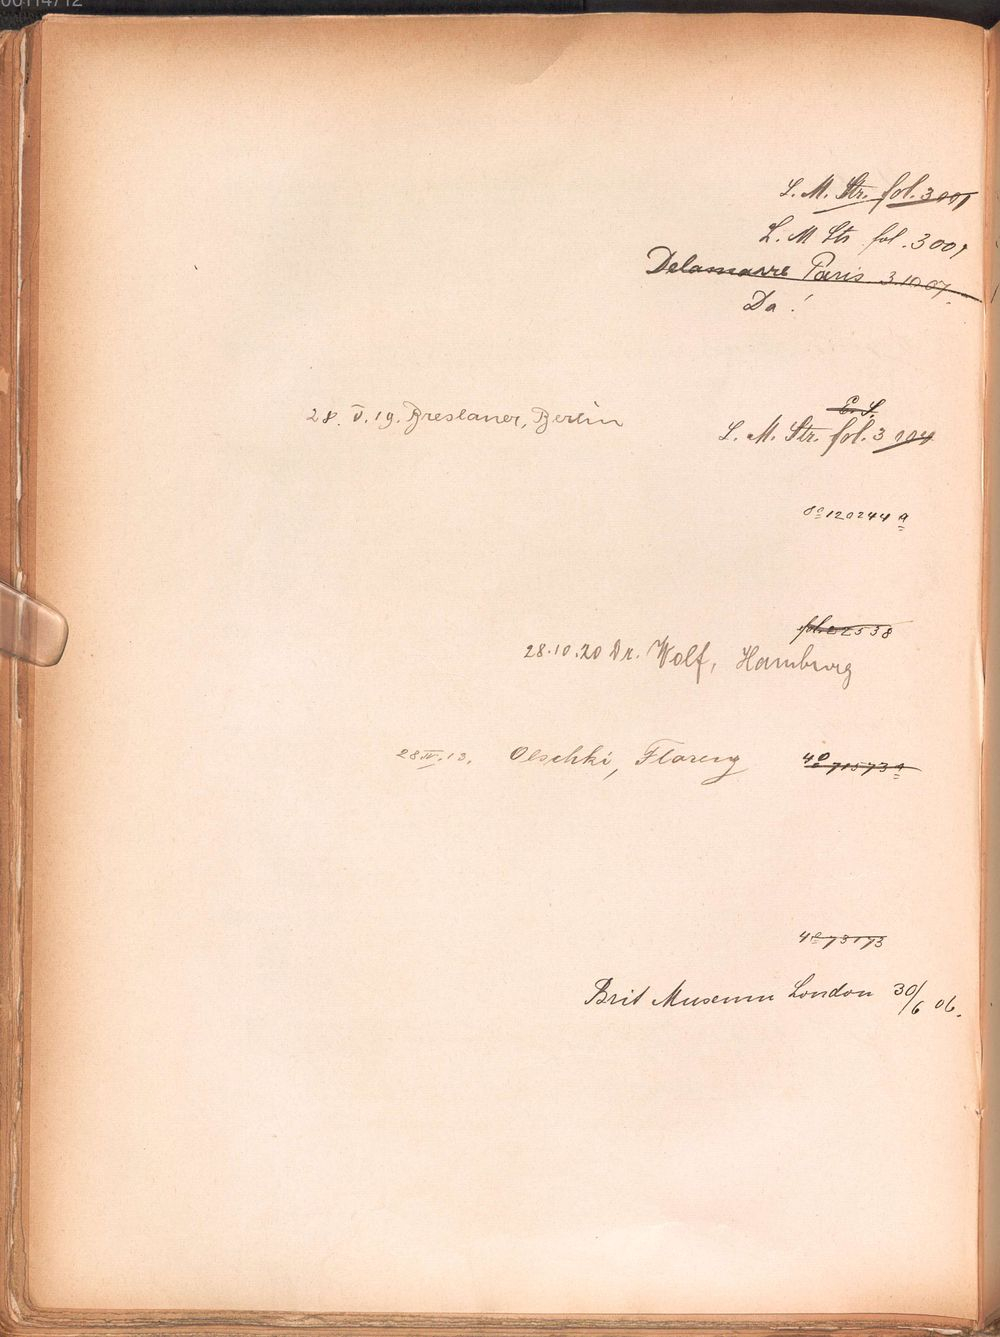 L. M. Str. fol. 3001
L. M Str. fol. 3001
Delamarre Paris 3.10.07.
Da!
E. S.
28. V. 19. Breslauer, Berlin L. M. Str. fol. 3 104
8º 120244 a
fol. 22538
28.10.20 Dr. Wolf, Hamburg
28 IV. 13. Olschki, Florenz 4º 71573 a
4º 73173
Brit Museum London 30/6 06.